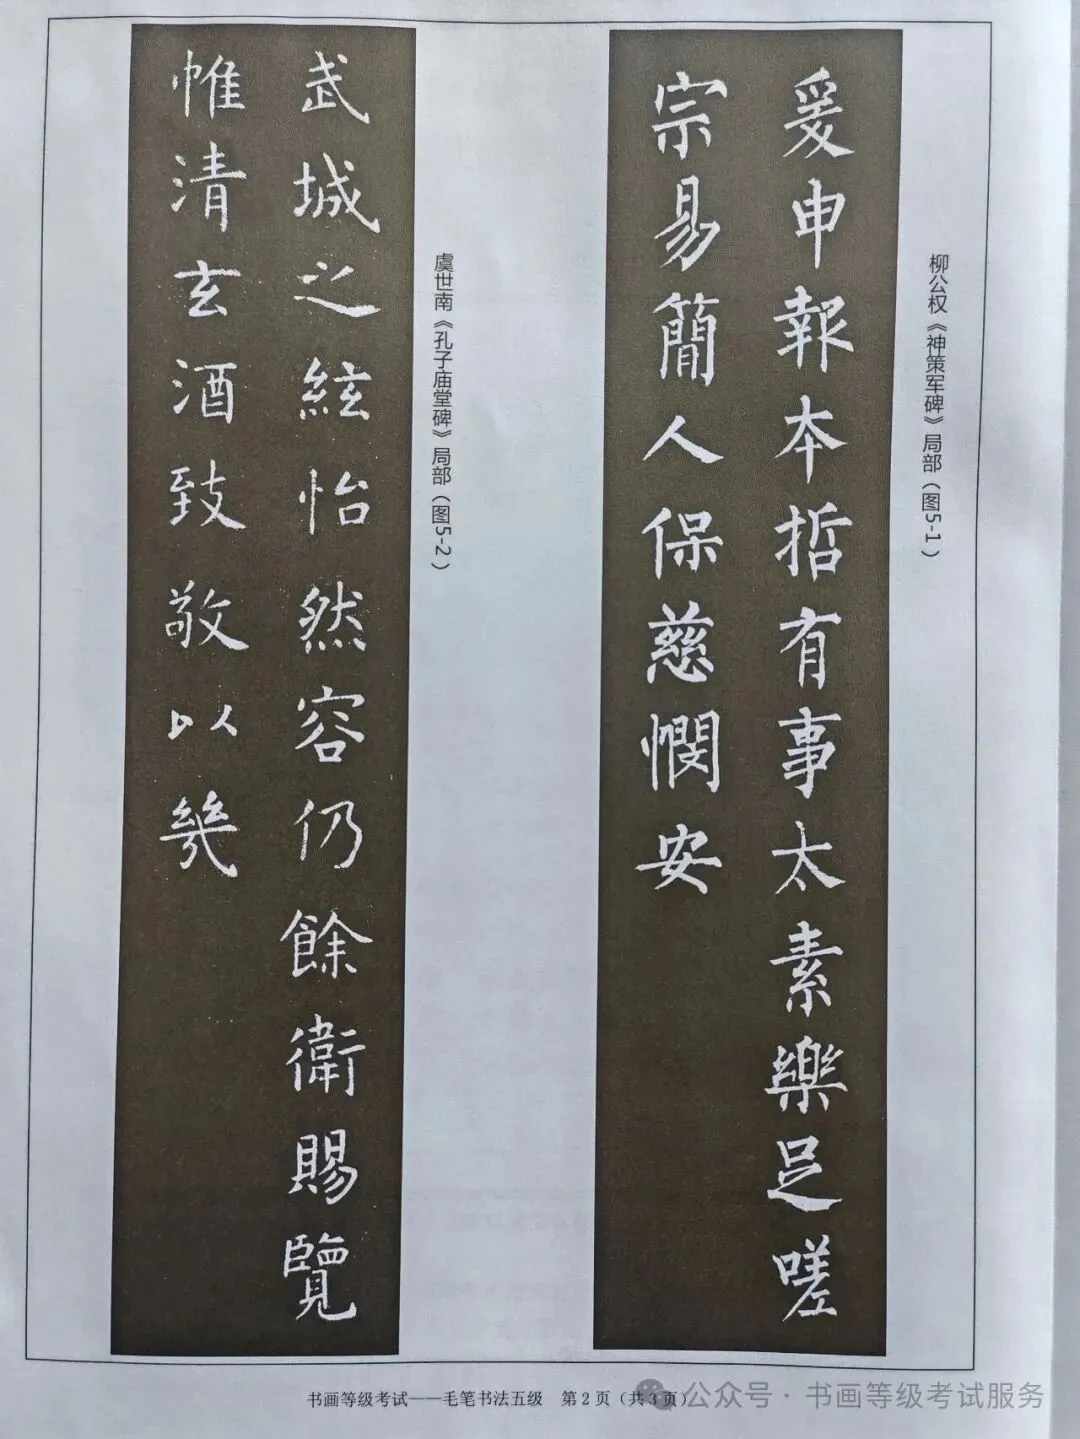 爰申報本哲有事太素樂足嗟
宗易簡人保慈憫安
柳公权《神策军碑》局部（图5-1）
武城之絃怡然容仍餘衛賜覽
帷清玄酒致敬以幾
虞世南《孔子庙堂碑》局部（图5-2）
书画等级考试——毛笔书法五级 第2页（共3页）
公众号·书画等级考试服务